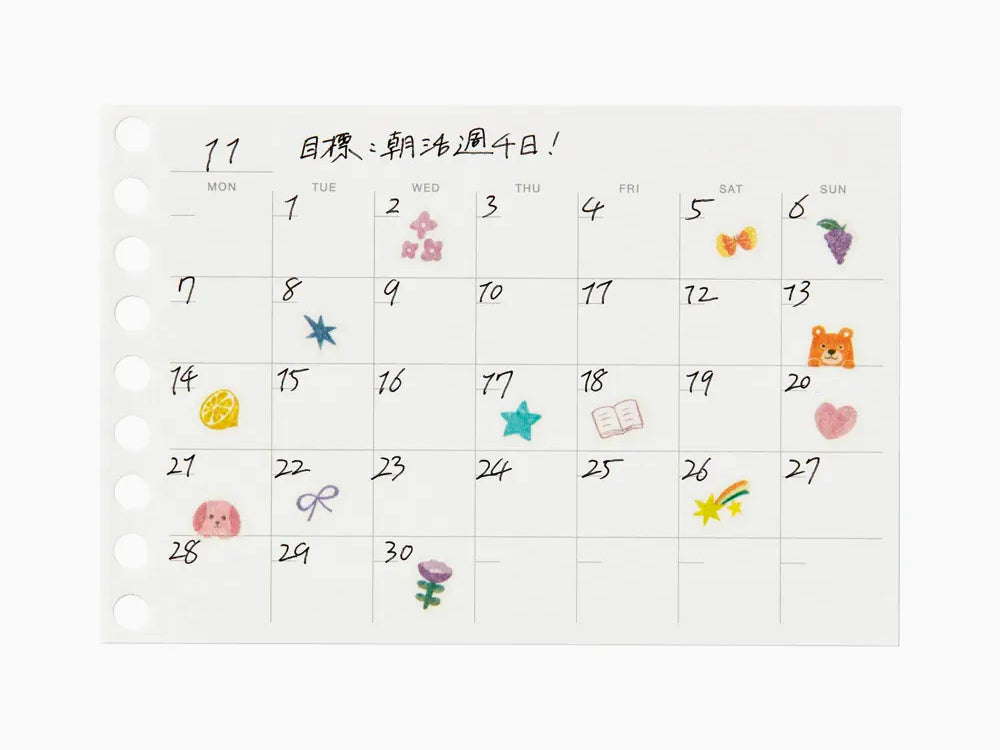 11 目標:朝活週4日!
MON TUE WED THU FRI SAT SUN
1 2 3 4 5 6
7 8 9 10 11 12 13
14 15 16 17 18 19 20
21 22 23 24 25 26 27
28 29 30